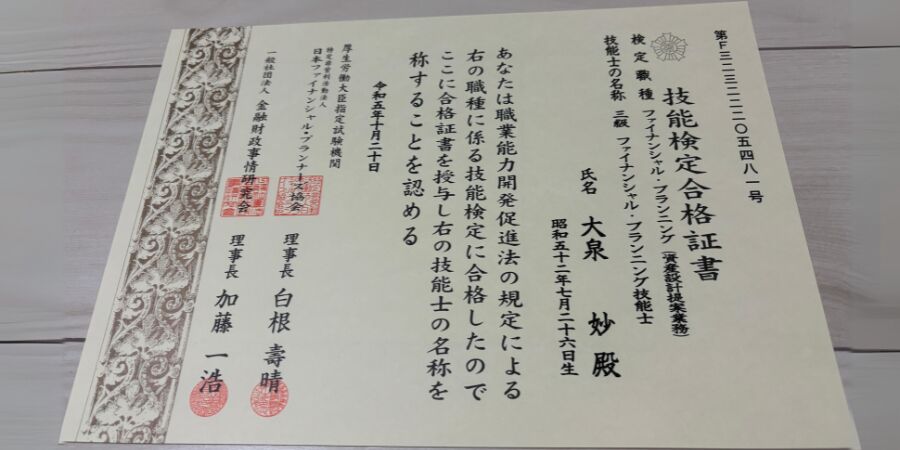 第F三二三二二二〇五四八一号
技能検定合格証書
検定職種 ファイナンシャル・プランニング(資産設計提案業務)
技能士の名称 三級 ファイナンシャル・プランニング技能士
氏名 大泉 妙 殿
昭和五十二年七月二十六日生
あなたは職業能力開発促進法の規定による
右の職種に係る技能検定に合格したので
ここに合格証書を授与し右の技能士の名称を
称することを認める
令和五年十月二十日
厚生労働大臣指定試験機関
特定非営利活動法人
日本ファイナンシャル・プランナーズ協会
理事長 白根 壽晴
一般社団法人 金融財政事情研究会
理事長 加藤 一浩